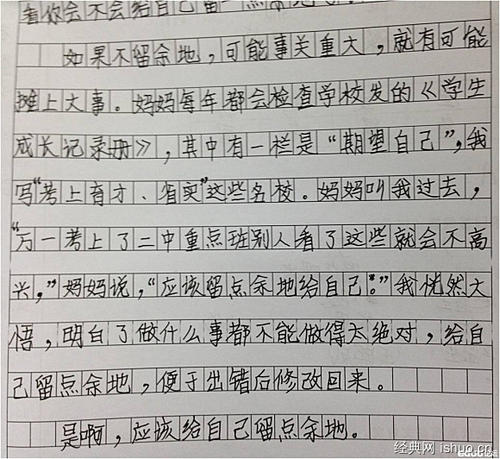 看你会不会给自己留一点余地
如果不留余地，可能事关重大，就有可能
摊上大事。妈妈每年都会检查学校发的《学生
成长记录册》，其中有一栏是“期望自己”，我
写“考上育才、省实”这些名校。妈妈叫我过去，
“万一考上了二中重点班别人看了这些就会不高
兴，”妈妈说，“应该留点余地给自己。”我恍然大
悟，明白了做什么事都不能做得太绝对，给自
己留点余地，便于出错后修改回来。
是啊，应该给自己留点余地。
经典网 ishuo.cn